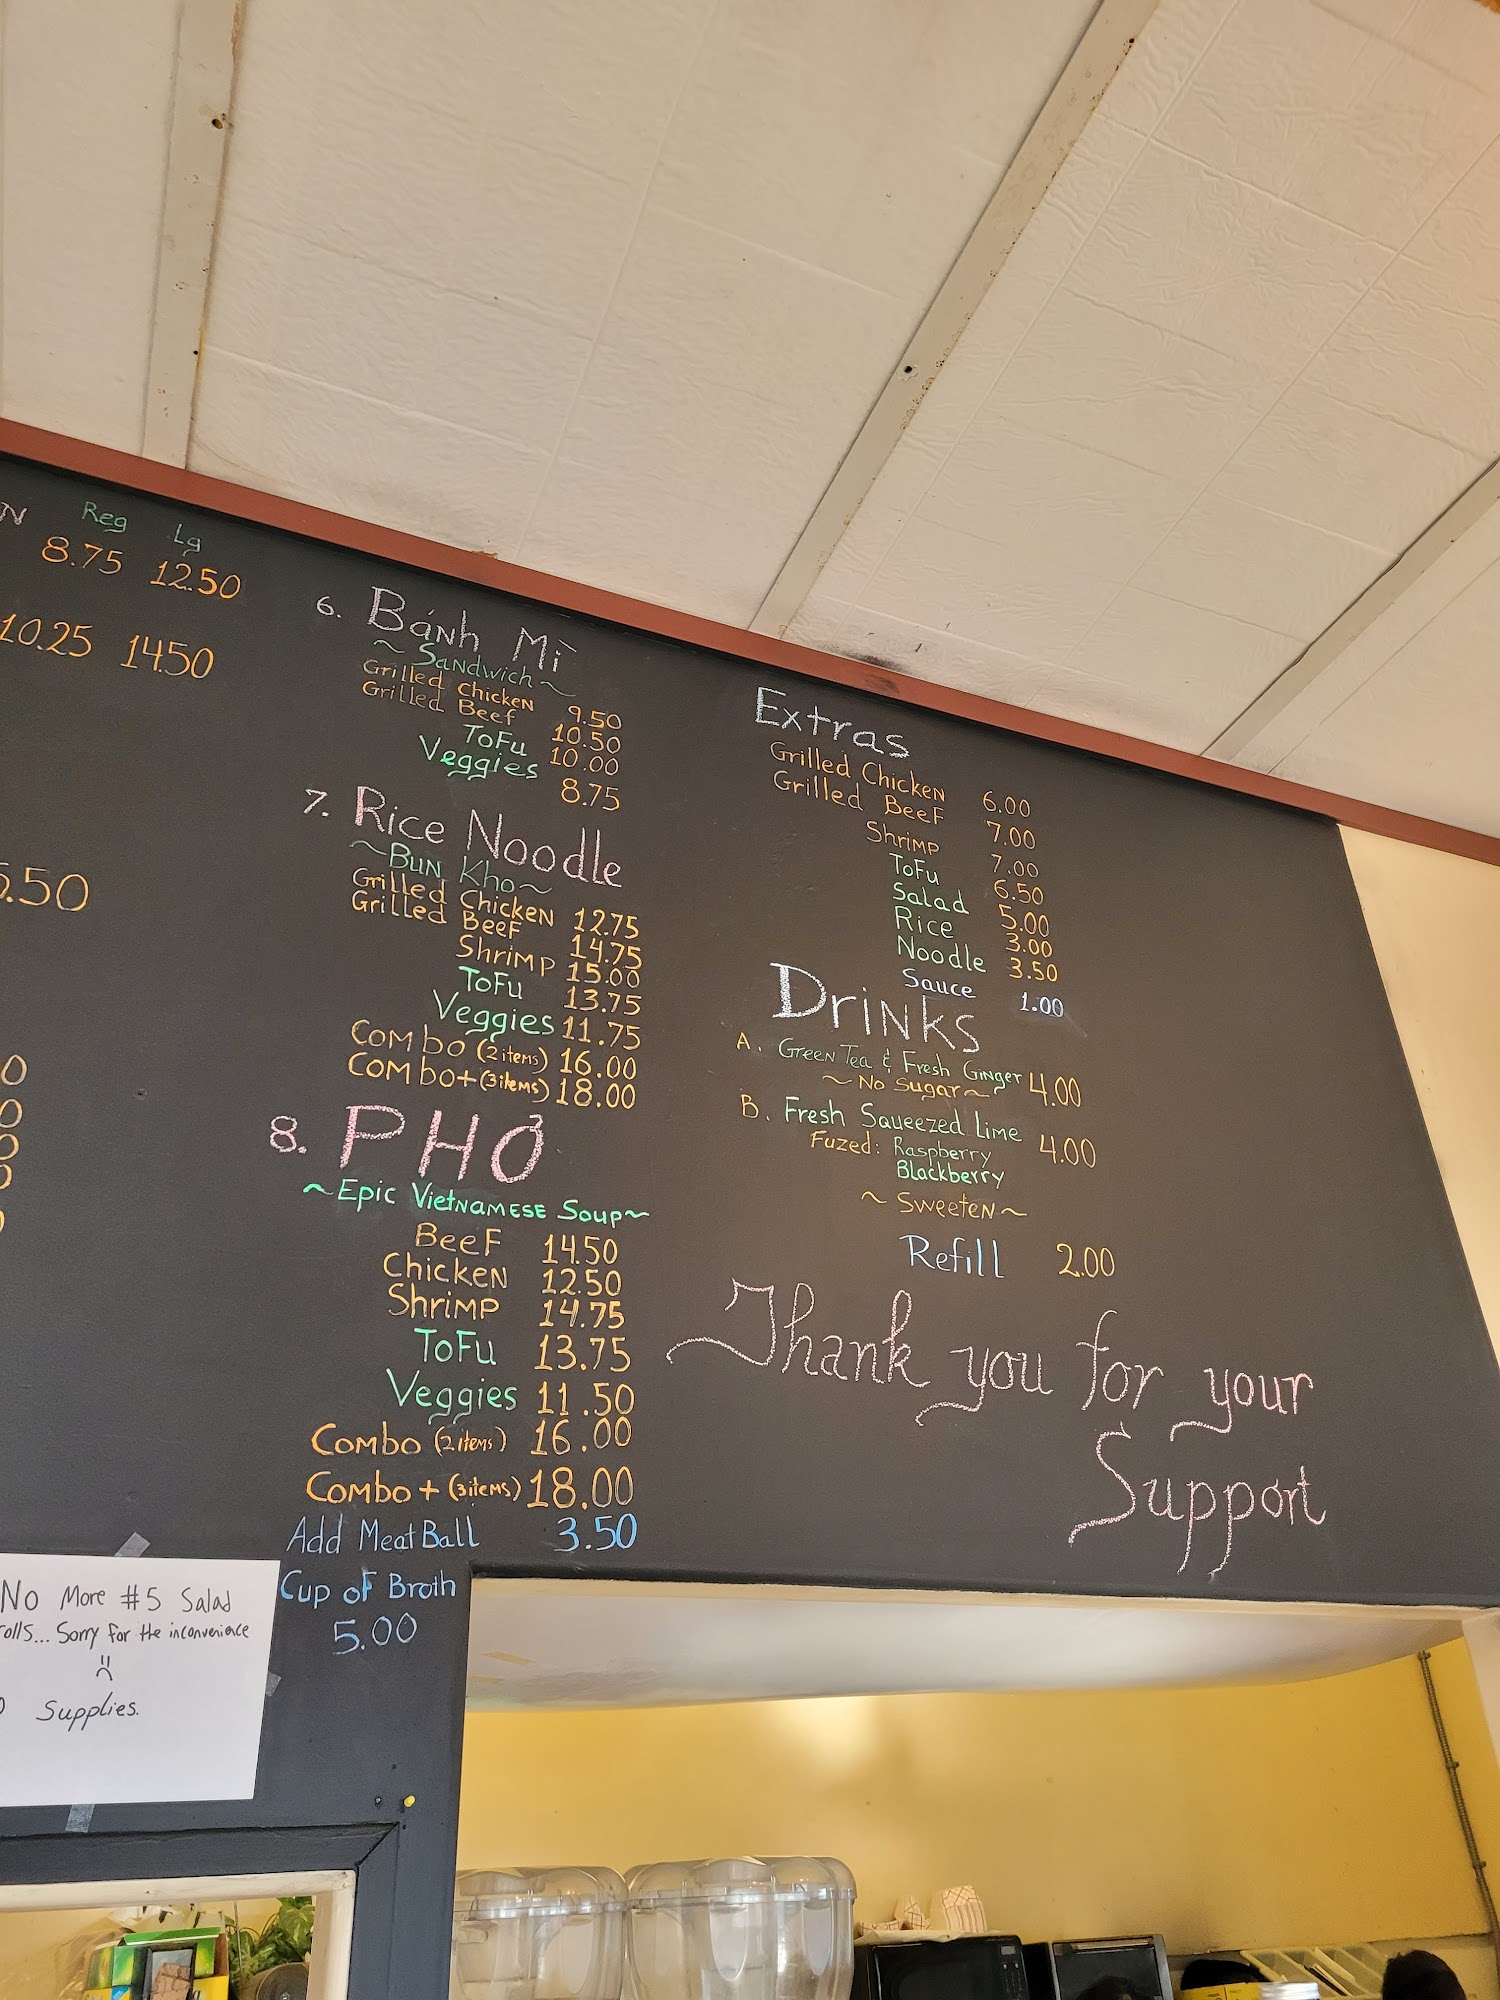 Reg Lg
8.75 12.50
10.25 14.50
6. Bánh Mì
~ Sandwich ~
Grilled Chicken 9.50
Grilled Beef 10.50
Tofu 10.00
Veggies 8.75
7. Rice Noodle
~Bun Kho~
Grilled Chicken 12.75
Grilled Beef 14.75
Shrimp 15.00
Tofu 13.75
Veggies 11.75
Combo (2 items) 16.00
Combo+ (3 items) 18.00
8. PHỞ
~Epic Vietnamese Soup~
Beef 14.50
Chicken 12.50
Shrimp 14.75
Tofu 13.75
Veggies 11.50
Combo (2 items) 16.00
Combo + (3 items) 18.00
Add Meat Ball 3.50
Cup of Broth
5.00
Extras
Grilled Chicken 6.00
Grilled Beef 7.00
Shrimp 7.00
Tofu 6.50
Salad 5.00
Rice 3.00
Noodle 3.50
Sauce 1.00
Drinks
A. Green Tea & Fresh Ginger 4.00
~ No Sugar ~
B. Fresh Squeezed Lime 4.00
Fuzed: Raspberry
Blackberry
~ Sweeten ~
Refill 2.00
Thank you for your
Support
No More #5 Salad
rolls... Sorry for the inconvenience
Supplies.